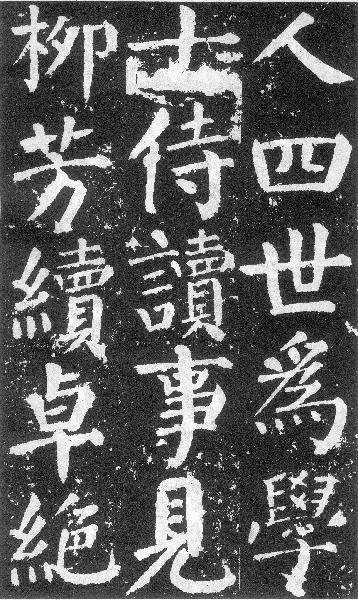 人四世爲學
士侍讀事見
柳芳續卓絶